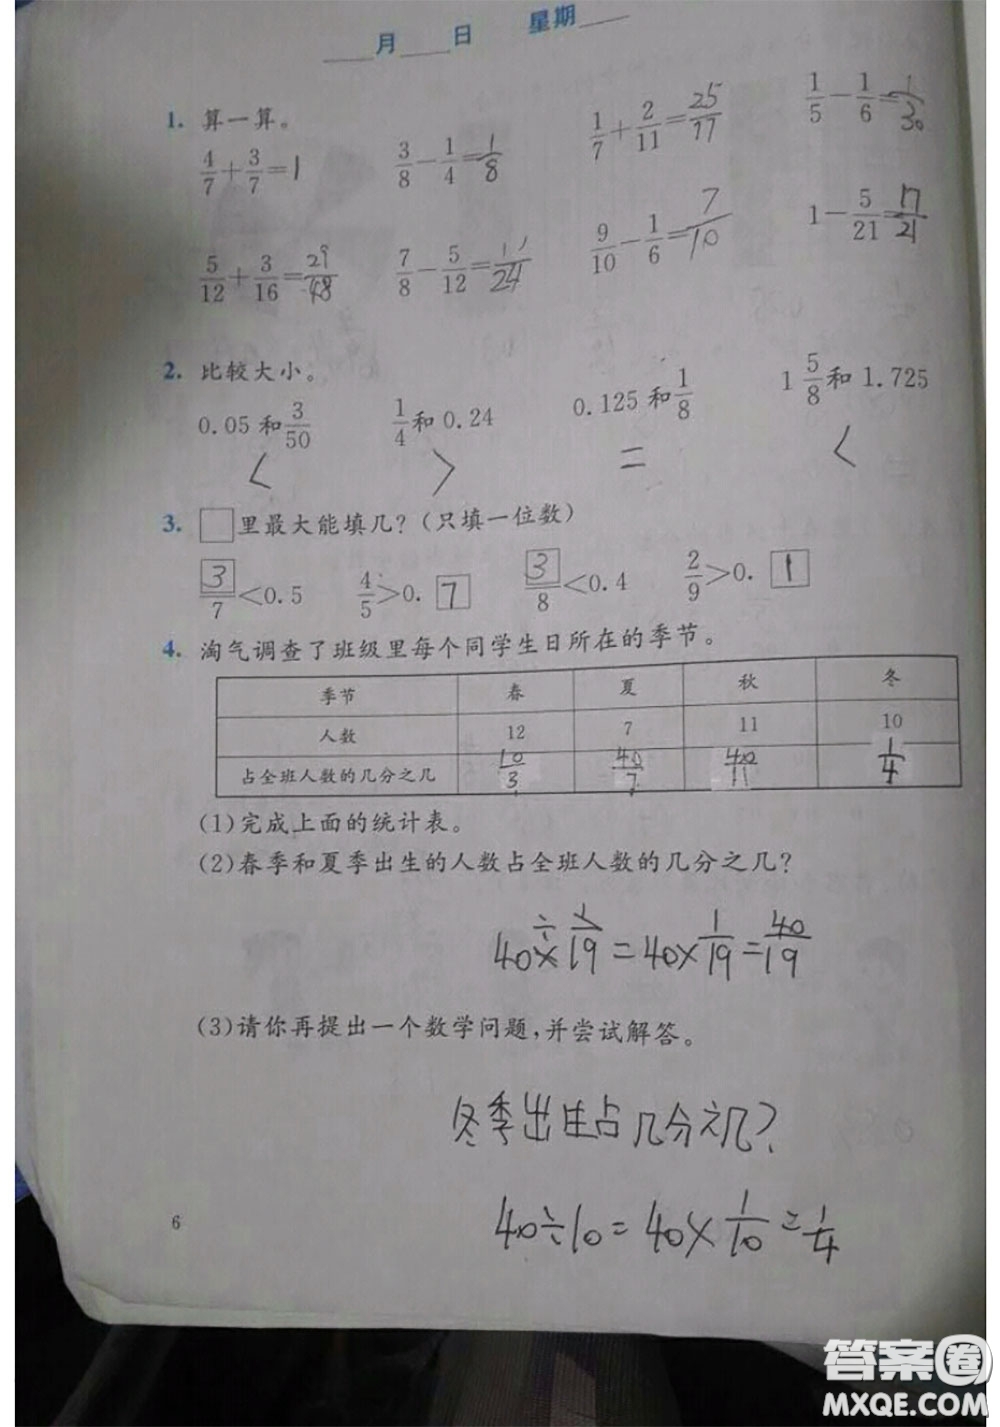 ____月____日 星期____
1. 算一算。
4/7+3/7=1 3/8-1/4=1/8 1/7+2/11=25/77 1/5-1/6=1/30
5/12+3/16=29/48 7/8-5/12=11/24 9/10-1/6=7/10 1-5/21=17/21
2. 比较大小。
0.05和3/50 1/4和0.24 0.125和1/8 1 5/8和1.725
< > = <
3. □里最大能填几?(只填一位数)
3/7<0.5 4/5>0.7 3/8<0.4 2/9>0.1
4. 淘气调查了班级里每个同学生日所在的季节。
季节 春 夏 秋 冬
人数 12 7 11 10
占全班人数的几分之几 10/3 40/7 40/11 1/4
(1)完成上面的统计表。
(2)春季和夏季出生的人数占全班人数的几分之几?
40÷1/19=40×1/19=40/19
(3)请你再提出一个数学问题,并尝试解答。
冬季出生占几分之几?
40÷10=40×1/10=1/4
6
答案圈
MXQE.COM